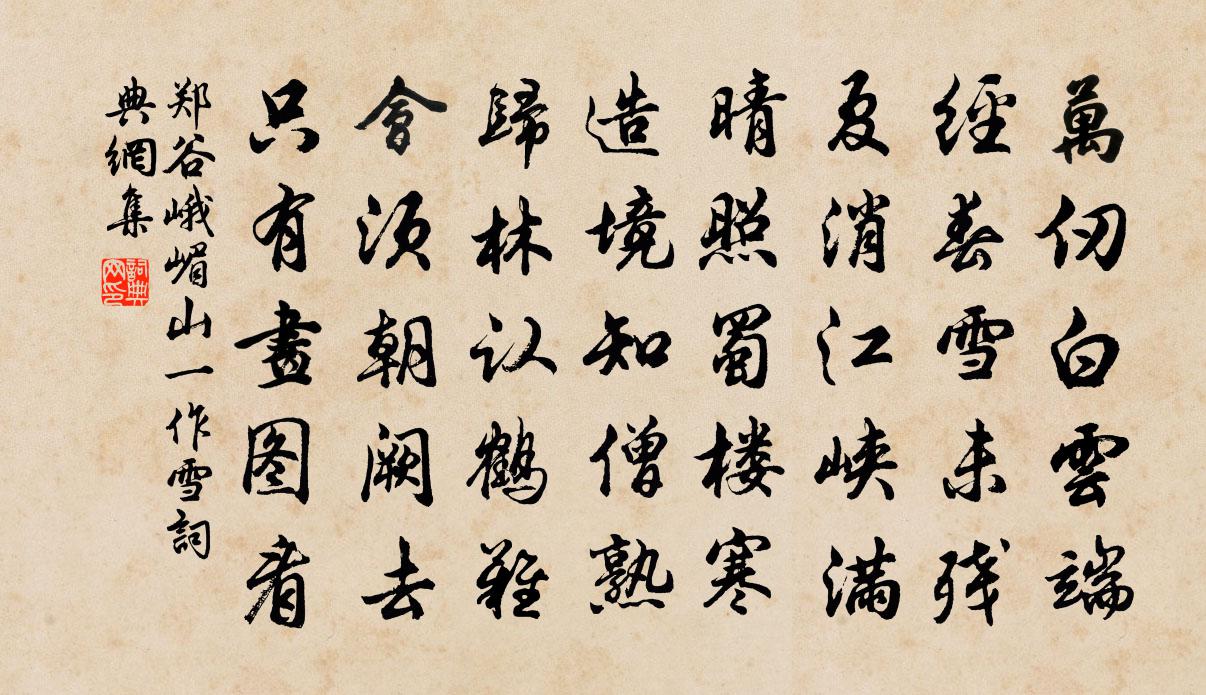 萬仞白雲端
經春雪未残
夏消江峡滿
晴照蜀楼寒
造境知僧熟
歸林认鶴難
會须朝阙去
只有畫图看
郑谷峨嵋山一作雪詞
典網集
詞典
网印